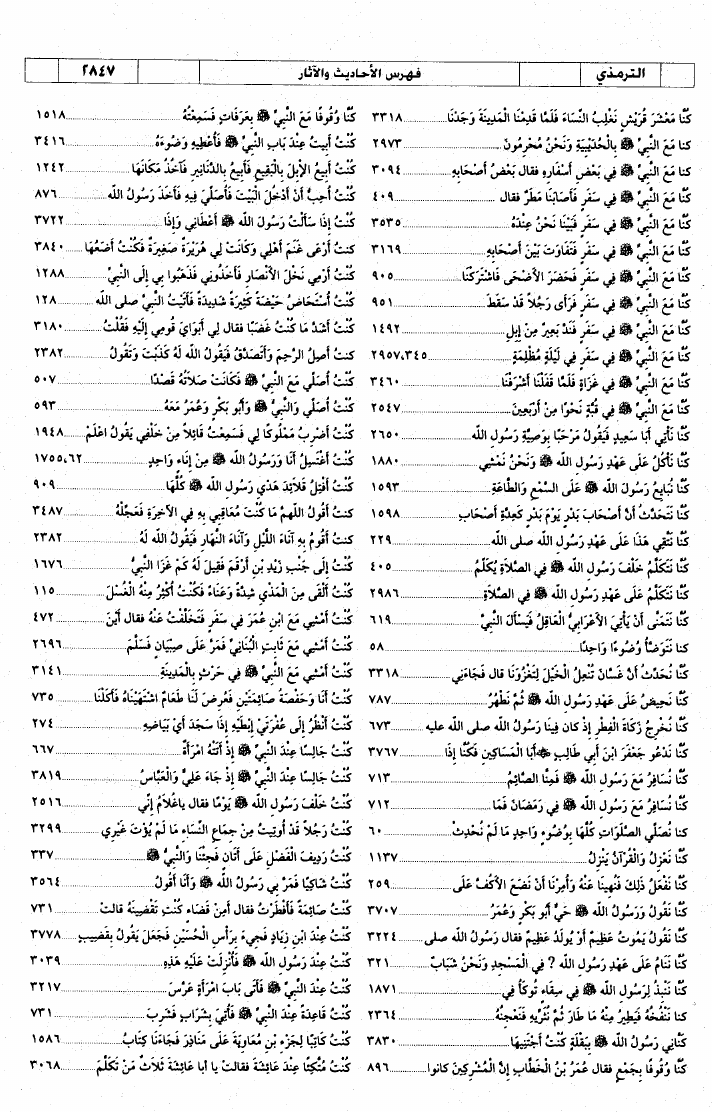 الترمذي فهرس الأحاديث والآثار ٢٨٤٧
كُنَّا مَعْشَرَ قُرَيْشٍ نَغْلِبُ النِّسَاءَ فَلَمَّا قَدِمْنَا الْمَدِينَةَ وَجَدْنَا ٣٣١٨
كنا مَعَ النَّبِيِّ ﷺ بِالْحُدَيْبِيَةِ وَنَحْنُ مُحْرِمُونَ ٢٩٧٣
كنا مَعَ النَّبِيِّ ﷺ فِي بَعْضِ أَسْفَارِهِ فقال بَعْضُ أَصْحَابِهِ ٣٠٩٤
كُنَّا مَعَ النَّبِيِّ ﷺ فِي سَفَرٍ فَأَصَابَنَا مَطَرٌ فقال ٤٠٩
كُنَّا مَعَ النَّبِيِّ ﷺ فِي سَفَرٍ فَبَيْنَا نَحْنُ عِنْدَهُ ٣٥٣٥
كُنَّا مَعَ النَّبِيِّ ﷺ فِي سَفَرٍ فَتَفَاوَتَ بَيْنَ أَصْحَابِهِ ٣١٦٩
كُنَّا مَعَ النَّبِيِّ ﷺ فِي سَفَرٍ فَحَضَرَ الأَضْحَى فَاشْتَرَكْنَا ٩٠٥
كُنَّا مَعَ النَّبِيِّ ﷺ فِي سَفَرٍ فَرَأَى رَجُلاً قَدْ سَقَطَ ٩٥١
كُنَّا مَعَ النَّبِيِّ ﷺ فِي سَفَرٍ فَنَدَّ بَعِيرٌ مِنْ إِبِلِ ١٤٩٢
كُنَّا مَعَ النَّبِيِّ ﷺ فِي سَفَرٍ فِي لَيْلَةٍ مُظْلِمَةٍ ٢٩٥٧،٣٤٥
كُنَّا مَعَ النَّبِيِّ ﷺ فِي غَزَاةٍ فَلَمَّا قَفَلْنَا أَشْرَفْنَا ٣٤٦٠
كُنَّا مَعَ النَّبِيِّ ﷺ فِي قُبَّةٍ نَحْوًا مِنْ أَرْبَعِينَ ٢٥٤٧
كُنَّا نَأْتِي أَبَا سَعِيدٍ فَيَقُولُ مَرْحَبًا بِوَصِيَّةِ رَسُولِ الله ٢٦٥٠
كُنَّا نَأْكُلُ عَلَى عَهْدِ رَسُولِ الله ﷺ وَنَحْنُ نَمْشِي ١٨٨٠
كُنَّا نُبَايِعُ رَسُولَ الله ﷺ عَلَى السَّمْعِ وَالطَّاعَةِ ١٥٩٣
كُنَّا نَتَحَدَّثُ أَنَّ أَصْحَابَ بَدْرٍ يَوْمَ بَدْرٍ كَعِدَّةِ أَصْحَابِ ١٥٩٨
كُنَّا نَتَّقِي هَذَا عَلَى عَهْدِ رسول الله صلى الله ٢٢٩
كُنَّا نَتَكَلَّمُ خَلْفَ رَسُولِ الله ﷺ فِي الصَّلاَةِ يُكَلِّمُ ٤٠٥
كُنَّا نَتَكَلَّمُ عَلَى عَهْدِ رَسُولِ الله ﷺ فِي الصَّلاَةِ ٢٩٨٦
كُنَّا نَتَمَنَّى أَنْ يَأْتِيَ الأَعْرَابِيُّ الْعَاقِلُ فَيَسْأَلَ النَّبِيَّ ٦١٩
كنا نَتَوَضَّأُ وُضُوءًا وَاحِدًا ٥٨
كُنَّا نُحَدَّثُ أَنَّ غَسَّانَ تُنْعِلُ الْخَيْلَ لِتَغْزُوَنَا قال فَجَاءَنِي ٣٣١٨
كُنَّا نَحِيضُ عَلَى عَهْدِ رَسُولِ الله ﷺ ثُمَّ نَطْهُرُ ٧٨٧
كُنَّا نُخْرِجُ زَكَاةَ الْفِطْرِ إِذ كان فِينَا رَسُولُ الله صلى الله عليه ٦٧٣
كُنَّا نَدْعُو جَعْفَرَ ابْنَ أَبِي طَالِبٍ أَبَا الْمَسَاكِينِ فَكُنَّا إِذَا ٣٧٦٧
كُنَّا نُسَافِرُ مَعَ رَسُولِ الله ﷺ فَمِنَّا الصَّائِمُ ٧١٣
كُنَّا نُسَافِرُ مَعَ رَسُولِ الله ﷺ فِي رَمَضَانَ فَمَا ٧١٢
كنا نُصَلِّي الصَّلَوَاتِ كُلَّهَا بِوُضُوءٍ وَاحِدٍ مَا لَمْ نُحْدِثْ ٦٠
كُنَّا نَعْزِلُ وَالْقُرْآنُ يَنْزِلُ ١١٣٧
كُنَّا نَفْعَلُ ذَلِكَ فَنُهِينَا عَنْهُ وَأُمِرْنَا أَنْ نَضَعَ الأَكُفَّ عَلَى ٢٥٩
كُنَّا نَقُولُ وَرَسُولُ الله ﷺ حَيٌّ أَبُو بَكْرٍ وَعُمَرُ ٣٧٠٧
كُنَّا نَقُولُ يَمُوتُ عَظِيمٌ أَوْ يُولَدُ عَظِيمٌ فقال رَسُولُ الله صلى ٣٢٢٤
كُنَّا نَنَامُ عَلَى عَهْدِ رَسُولِ الله ؟ فِي الْمَسْجِدِ وَنَحْنُ شَبَابٌ ٣٢١
كُنَّا نَنْبِذُ لِرَسُولِ الله ﷺ فِي سِقَاءٍ تُوكَأُ فِي ١٨٧١
كنا نَنْفُخُهُ فَيَطِيرُ مِنْهُ مَا طَارَ ثُمَّ نُثَرِّيهِ فَنَعْجِنُهُ ٢٣٦٤
كَنَّانِي رَسُولُ الله ﷺ بِبَقْلَةٍ كُنْتُ أَجْتَنِيهَا ٣٨٣٠
كُنَّا وُقُوفًا بِجَمْعٍ فقال عُمَرُ بْنُ الْخَطَّابِ إِنَّ الْمُشْرِكِينَ كانوا ٨٩٦
كُنَّا وُقُوفًا مَعَ النَّبِيِّ ﷺ بِعَرَفَاتٍ فَسَمِعْتُهُ ١٥١٨
كُنْتُ أَبِيتُ عِنْدَ بَابِ النَّبِيِّ ﷺ فَأُعْطِيهِ وَضُوءَهُ ٣٤١٦
كُنْتُ أَبِيعُ الإِبِلَ بِالْبَقِيعِ فَأَبِيعُ بِالدَّنَانِيرِ فَآخُذُ مَكَانَهَا ١٢٤٢
كُنْتُ أُحِبُّ أَنْ أَدْخُلَ الْبَيْتَ فَأُصَلِّيَ فِيهِ فَأَخَذَ رَسُولُ الله ٨٧٦
كُنْتُ إِذَا سَأَلْتُ رَسُولَ الله ﷺ أَعْطَانِي وَإِذَا ٣٧٢٢
كنتُ أَرْعَى غَنَمَ أَهْلِي وَكَانَتْ لِي هُرَيْرَةٌ صَغِيرَةٌ فَكُنْتُ أَضَعُهَا ٣٨٤٠
كُنْتُ أَرْمِي نَخْلَ الأَنْصَارِ فَأَخَذُونِي فَذَهَبُوا بِي إِلَى النَّبِيِّ ١٢٨٨
كُنْتُ أُسْتَحَاضُ حَيْضَةً كَثِيرَةً شَدِيدَةً فَأَتَيْتُ النَّبِيَّ صلى الله ١٢٨
كُنْتُ أَشَدَّ مَا كُنْتُ غَضَبًا فقال لِي أَبَوَايَ قُومِي إِلَيْهِ فَقُلْتُ ٣١٨٠
كنتُ أَصِلُ الرَّحِمَ وَأَتَصَدَّقُ فَيَقُولُ الله لَهُ كَذَبْتَ وَتَقُولُ ٢٣٨٢
كُنْتُ أُصَلِّي مَعَ النَّبِيِّ ﷺ فَكَانَتْ صَلاَتُهُ قَصْدًا ٥٠٧
كُنْتُ أُصَلِّي وَالنَّبِيُّ ﷺ وَأَبُو بَكْرٍ وَعُمَرُ مَعَهُ ٥٩٣
كُنْتُ أَضْرِبُ مَمْلُوكًا لِي فَسَمِعْتُ قَائِلاً مِنْ خَلْفِي يَقُولُ اعْلَمْ ١٩٤٨
كُنْتُ أَغْتَسِلُ أَنَا وَرَسُولُ الله ﷺ مِنْ إِنَاءٍ وَاحِدٍ ١٧٥٥،٦٢
كُنْتُ أَفْتِلُ قَلاَئِدَ هَدْيِ رَسُولِ الله ﷺ كُلَّهَا ٩٠٩
كنتُ أَقُولُ اللهم مَا كُنْتَ مُعَاقِبِي بِهِ فِي الآخِرَةِ فَعَجِّلْهُ ٣٤٨٧
كنتُ أَقُومُ بِهِ آنَاءَ اللَّيْلِ وَآنَاءَ النَّهَارِ فَيَقُولُ الله لَهُ ٢٣٨٢
كُنْتُ إِلَى جَنْبِ زَيْدِ بْنِ أَرْقَمَ فَقِيلَ لَهُ كَمْ غَزَا النَّبِيُّ ١٦٧٦
كُنْتُ أَلْقَى مِنَ الْمَذْيِ شِدَّةً وَعَنَاءً فَكُنْتُ أُكْثِرُ مِنْهُ الْغُسْلَ ١١٥
كُنْتُ أَمْشِي مَعَ ابْنِ عُمَرَ فِي سَفَرٍ فَتَخَلَّفْتُ عَنْهُ فقال أَيْنَ ٤٧٢
كُنْتُ أَمْشِي مَعَ ثَابِتٍ الْبُنَانِيِّ فَمَرَّ عَلَى صِبْيَانٍ فَسَلَّمَ ٢٦٩٦
كُنْتُ أَمْشِي مَعَ النَّبِيِّ ﷺ فِي حَرْثٍ بِالْمَدِينَةِ ٣١٤١
كُنْتُ أَنَا وَحَفْصَةُ صَائِمَتَيْنِ فَعُرِضَ لَنَا طَعَامٌ اشْتَهَيْنَاهُ فَأَكَلْنَا ٧٣٥
كُنْتُ أَنْظُرُ إِلَى عُفْرَتَيْ إِبْطَيْهِ إِذَا سَجَدَ أَيْ بَيَاضِهِ ٢٧٤
كُنْتُ جَالِسًا عِنْدَ النَّبِيِّ ﷺ إِذْ أَتَتْهُ امْرَأَةٌ ٦٦٧
كُنْتُ جَالِسًا عِنْدَ النَّبِيِّ ﷺ إِذْ جَاءَ عَلِيٌّ وَالْعَبَّاسُ ٣٨١٩
كُنْتُ خَلْفَ رَسُولِ الله ﷺ يَوْمًا فقال ياغُلاَمُ إِنِّي ٢٥١٦
كُنْتُ رَجُلاً قَدْ أُوتِيتُ مِنْ جِمَاعِ النِّسَاءِ مَا لَمْ يُؤْتَ غَيْرِي ٣٢٩٩
كُنْتُ رَدِيفَ الْفَضْلِ عَلَى أَتَانٍ فَجِئْنَا وَالنَّبِيُّ ﷺ ٣٣٧
كُنْتُ شَاكِيًا فَمَرَّ بِي رَسُولُ الله ﷺ وَأَنَا أَقُولُ ٣٥٦٤
كُنْتُ صَائِمَةً فَأَفْطَرْتُ فقال أَمِنْ قَضَاءٍ كُنْتِ تَقْضِينَهُ قالت ٧٣١
كُنْتُ عِنْدَ ابْنِ زِيَادٍ فَجِيءَ بِرَأْسِ الْحُسَيْنِ فَجَعَلَ يَقُولُ بِقَضِيبٍ ٣٧٧٨
كُنْتُ عِنْدَ رَسُولِ الله ﷺ فَأُنْزِلَتْ عَلَيْهِ هَذِهِ ٣٠٣٩
كُنْتُ عِنْدَ النَّبِيِّ ﷺ فَأَتَى بَابَ امْرَأَةٍ عَرَّسَ ٣٢١٧
كُنْتُ قَاعِدَةً عِنْدَ النَّبِيِّ ﷺ فَأُتِيَ بِشَرَابٍ فَشَرِبَ ٧٣١
كُنْتُ كَاتِبًا لِجَزْءِ بْنِ مُعَاوِيَةَ عَلَى مَنَاذِرَ فَجَاءَنَا كِتَابُ ١٥٨٦
كُنْتُ مُتَّكِئًا عِنْدَ عَائِشَةَ فقالتْ يا أبا عَائِشَةَ ثَلاَثٌ مَنْ تَكَلَّمَ ٣٠٦٨